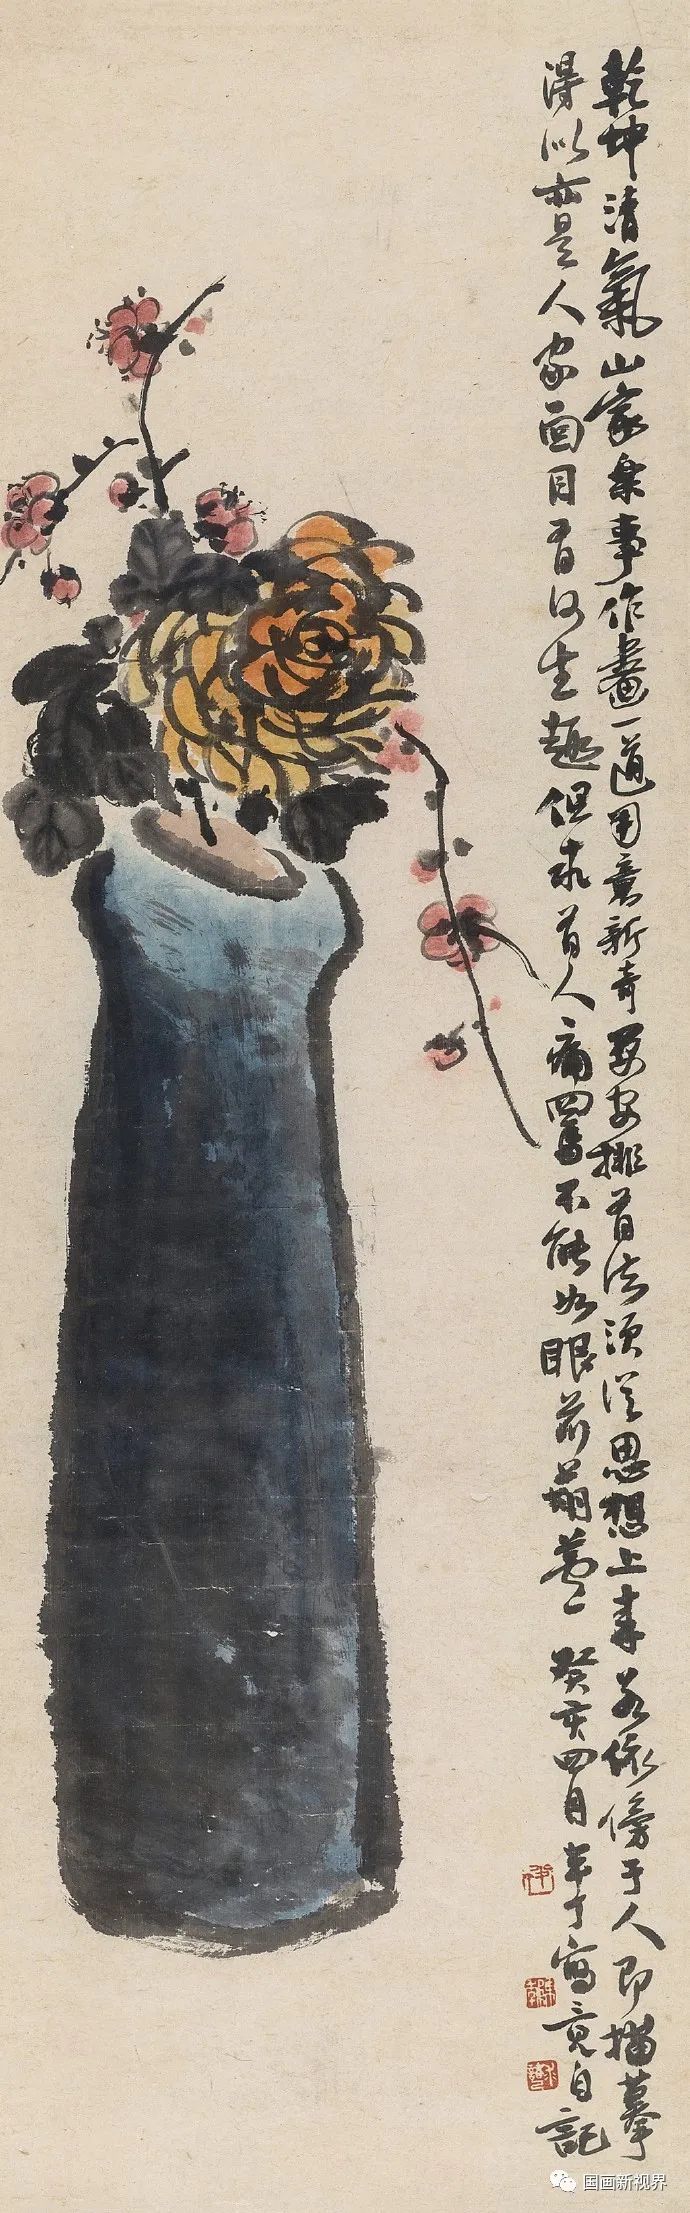 乾坤清氣山家樂事作畫一道用意新奇要安排有法須從思想上來若依傍于人即描摹
得似亦是人家面目有何生趣但求有人痛罵不能如眼前葫蘆
癸亥四月半丁寫竟自記
国画新视界